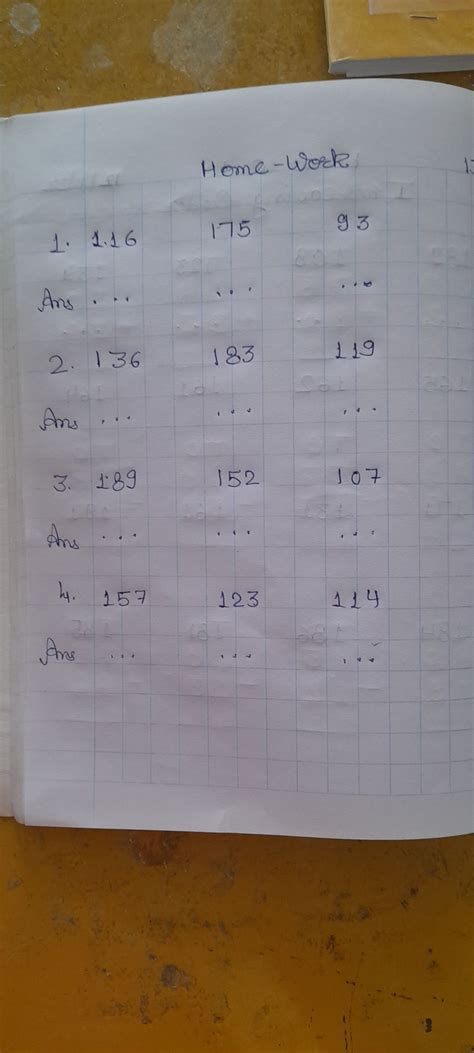 Home-Work
1. 1.16 175 93
Ans ... ... ...
2. 136 183 119
Ans ... ... ...
3. 189 152 107
Ans ... ... ...
4. 157 123 114
Ans ... ... ...